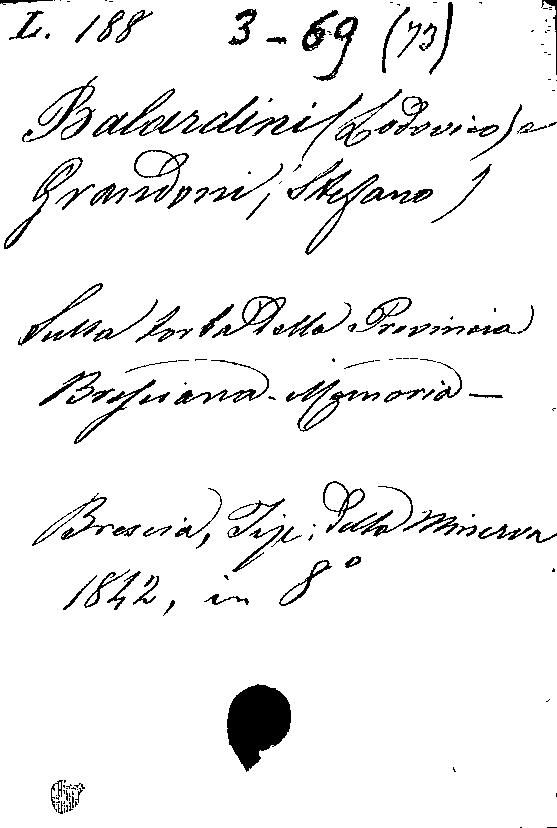 L. 188 3-69 (73)
Balardini (Lodovico) e
Grandoni (Stefano)
Sulla torba della Provincia
Bresciana - Memoria -
Brescia, Tip: della Minerva
1842, in 8°